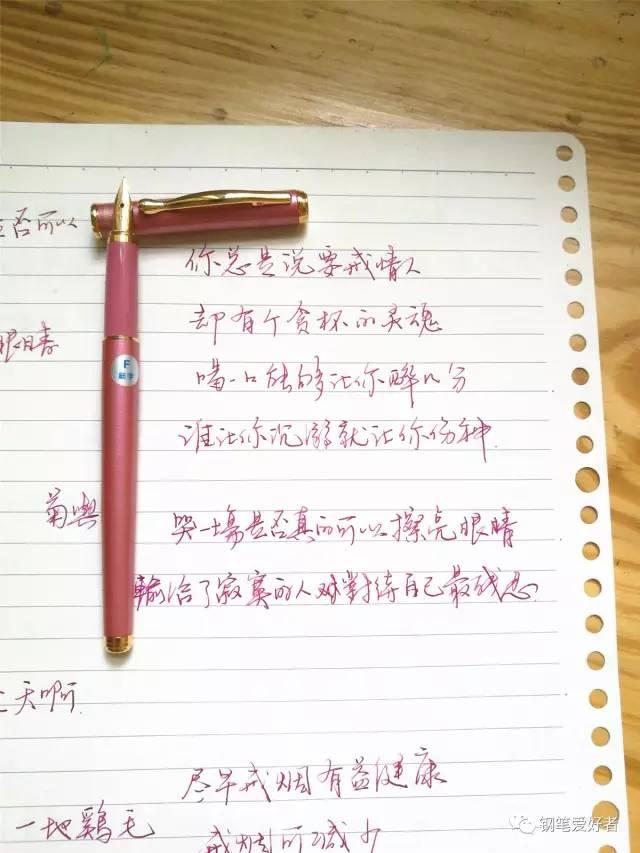 否可以
你总是说要戒情人
却有个贪杯的灵魂
眼睛
F
喝一口能够让你醉几分
谁让你沉溺就让你伤神
菊與
哭一場是否真的可以擦亮眼睛
輸给了寂寞的人对對待自己最残忍
天啊
尽早戒烟有益健康
一地鷄毛
戒烟可减少
钢笔爱好者